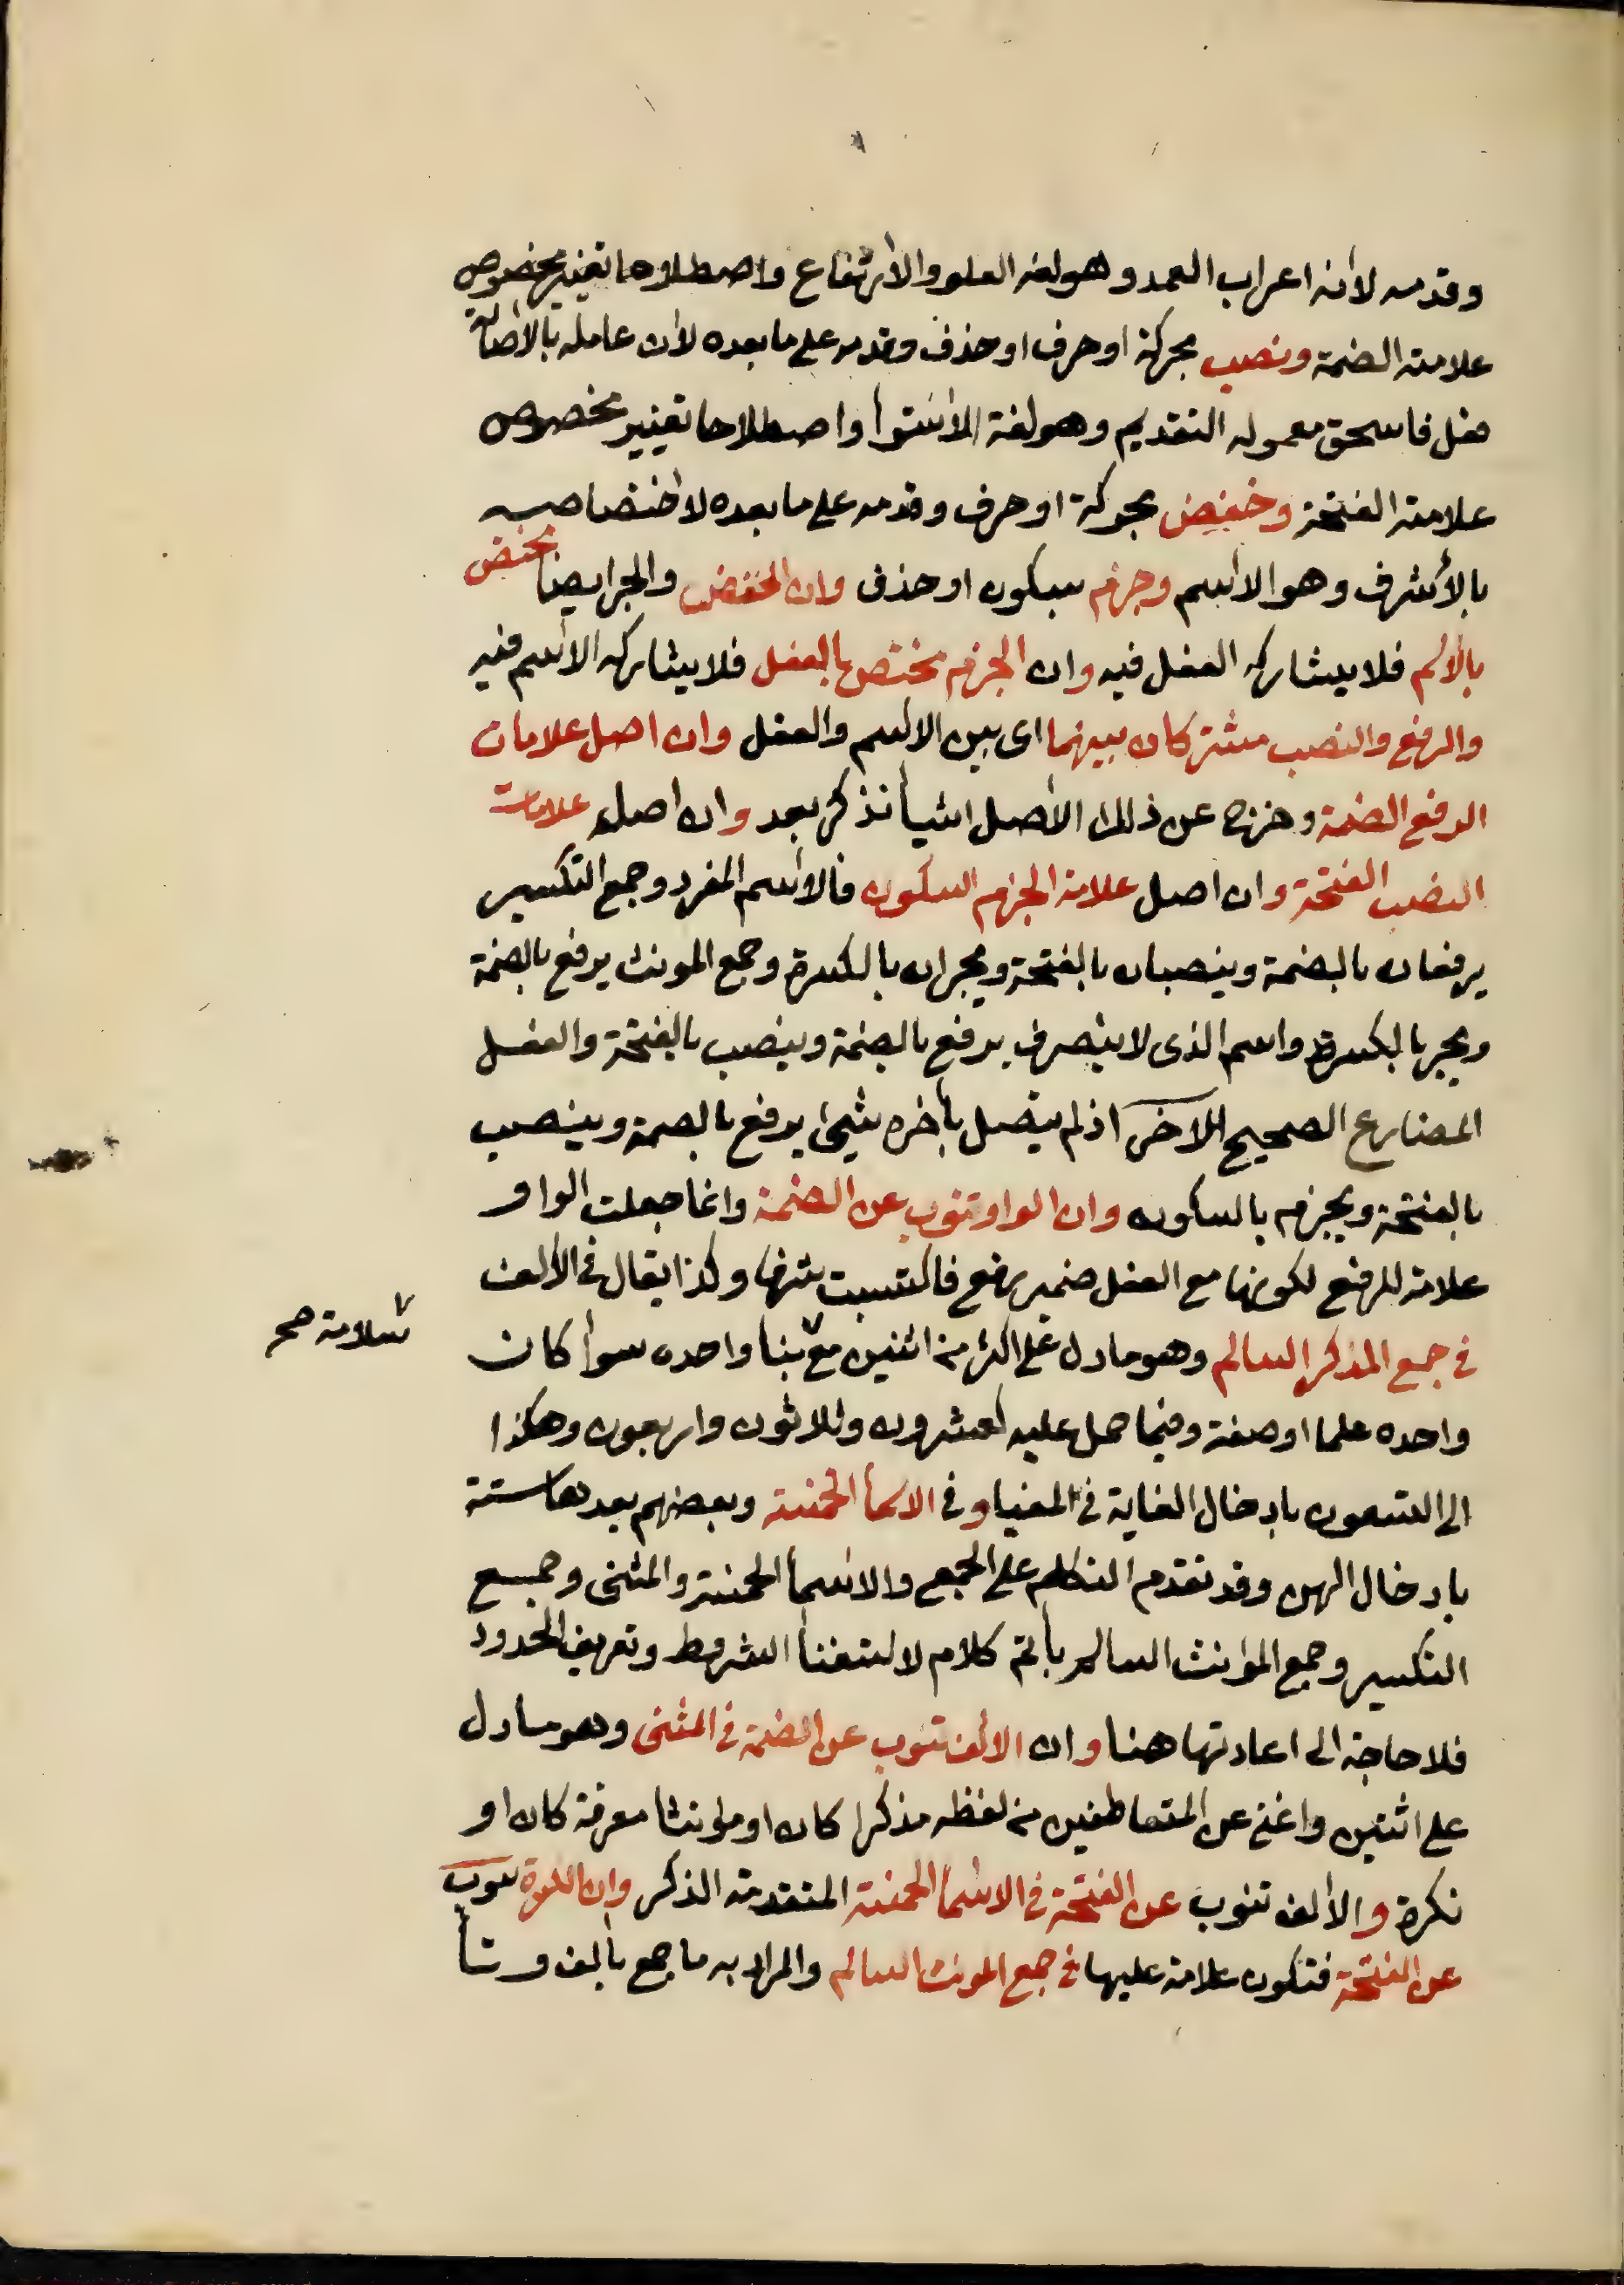 وقدمه لأنه اعراب العمد وهو لغة العلو والأرتفاع واصطلاحا تغيير مخصوص
علامته الضمة ونصب بحركة او حرف او حذف وقدمه على ما بعده لأن عامله بالأصالة
فعل فاستحق معموله التقديم وهو لغة الأستوا واصطلاحا تغيير مخصوص
علامته الفتحة وخفض بحركة او حرف وقدمه على ما بعده لاختصاصه
بالأشرف وهو الأسم وجزم بسكون او حذف وان الخفض والجر ايضا مختص
بالأسم فلا يشاركه الفعل فيه وان الجزم مختص بالفعل فلا يشاركه الأسم فيه
والرفع والنصب مشتركان بينهما اى بين الأسم والفعل وان اصل علامات
الرفع الضمة وخرج عن ذلك الأصل اشيأ تذكر بعد وان اصل علامات
النصب الفتحة وان اصل علامة الجزم السكون فالأسم المفرد وجمع التكسير
يرفعان بالضمة وينصبان بالفتحة ويجران بالكسرة وجمع المونث يرفع بالضمة
ويجر بالكسرة واسم الذى لا ينصرف يرفع بالضمة وينصب بالفتحة والفعل
المضارع الصحيح الآخر اذ لم يتصل بأخره شيئ يرفع بالضمة وينصب
بالفتحة ويجزم بالسكون وان الواو تنوب عن الضمة وانما جعلت الواو
علامة للرفع لكونها مع الفعل ضمير رفع فاكتسبت شرفا وكذا يقال فى الألف
فى جمع المذكر السالم وهو ما دل على اكثر من اثنين مع بنا واحده سوأ كان
سلامة صح
واحده علما او صفة وفيما حمل عليه كعشرون وثلاثون واربعون وهكذا
الى التسعون بادخال الغاية فى المغيا وفى الاسمأ الخمسة وبعضهم يعدها ستة
بادخال الهن وقد تقدم التكلم على الجمع والأسمأ الخمسة والمثنى وجمع
التكسير وجمع المؤنث السالم بأتم كلام لاستيفأ الشروط وتعريف الحدود
فلا حاجة الى اعادتها هنا وان الألف تنوب عن الضمة فى المثنى وهو ما دل
على اثنين واغنى عن المتعاطفين من لفظه مذكرا كان او مؤنثا معرفة كان او
نكرة والألف تنوب عن الفتحة فى الأسمأ الخمسة المتقدمة الذكر وان الكسرة تنوب
عن الفتحة فتكون علامة عليها فى جمع المونث السالم والمراد به ما جمع بألف وتأ